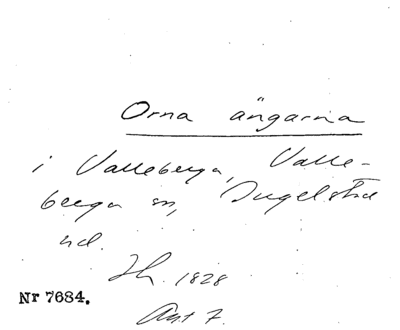 Orna ängarna
i Valleberga, Valle-
berga sn, Ingelstad
hd.
Jh. 1828
Nr 7684.
Akt 7.